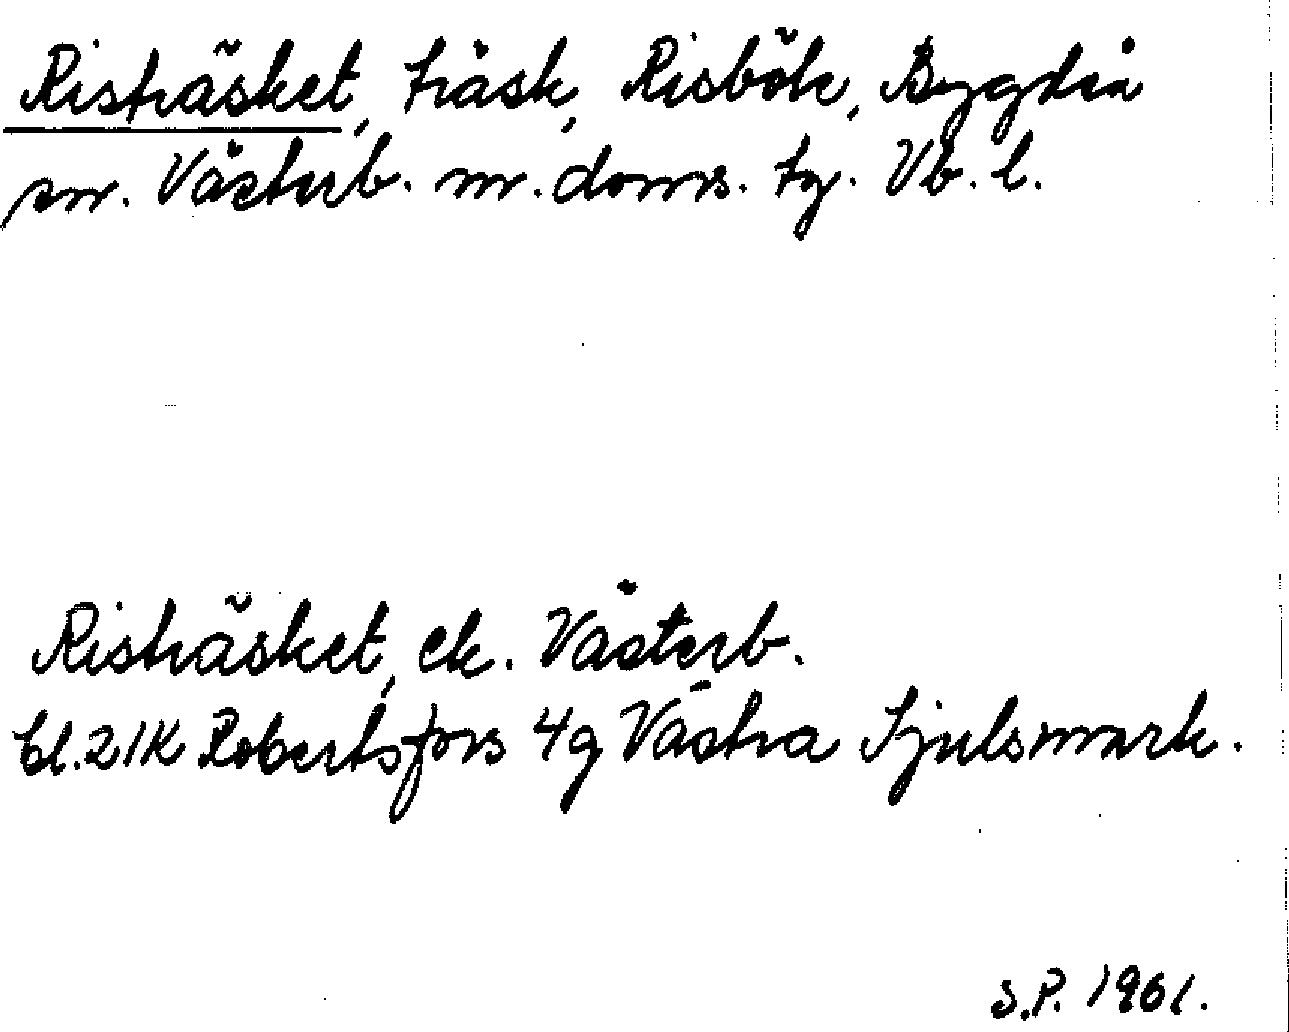 Risträsket, träsk, Risbök, Bygdeå
sn. Västerb. nr. doms. tg. Vb. l.
Risträsket, ek. Västerb.
bl. 21K Robertsfors 4g Västra Sjulsmark.
S.P. 1961.